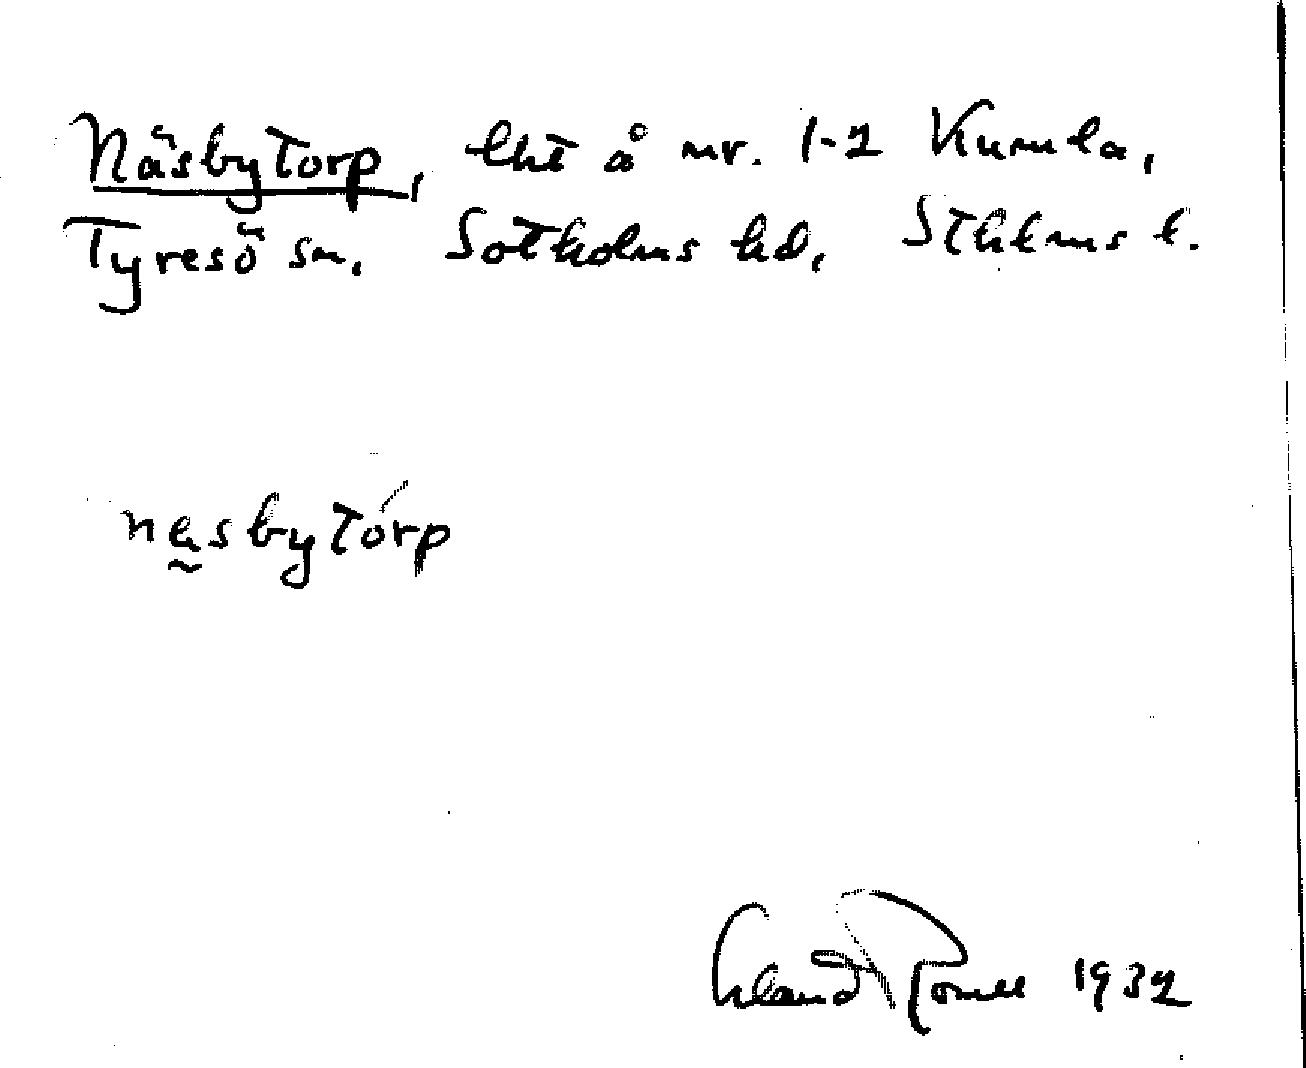 Näsbytorp, lht å nr. 1-2 Kumla,
Tyresö sn, Sotholms hd, Sthlms l.
näsbytórp
Erland Rosell 1932